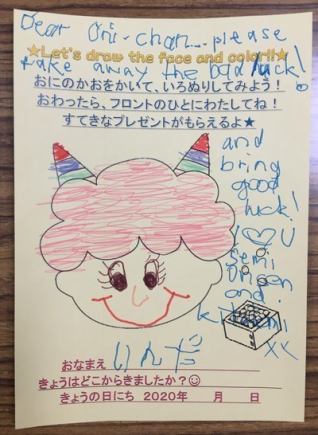 Dear Oni-chan... please
★Let's draw the face and color!!★
take away the bad luck!
おにのかおをかいて、いろぬりしてみよう!
おわったら、フロントのひとにわたしてね!
すてきなプレゼントがもらえるよ★
and
bring
good
luck!
I ♡ U
Semi
Origen
and
xx
おなまえ りんだ
きょうはどこからきましたか?☺
きょうの日にち 2020年 月 日